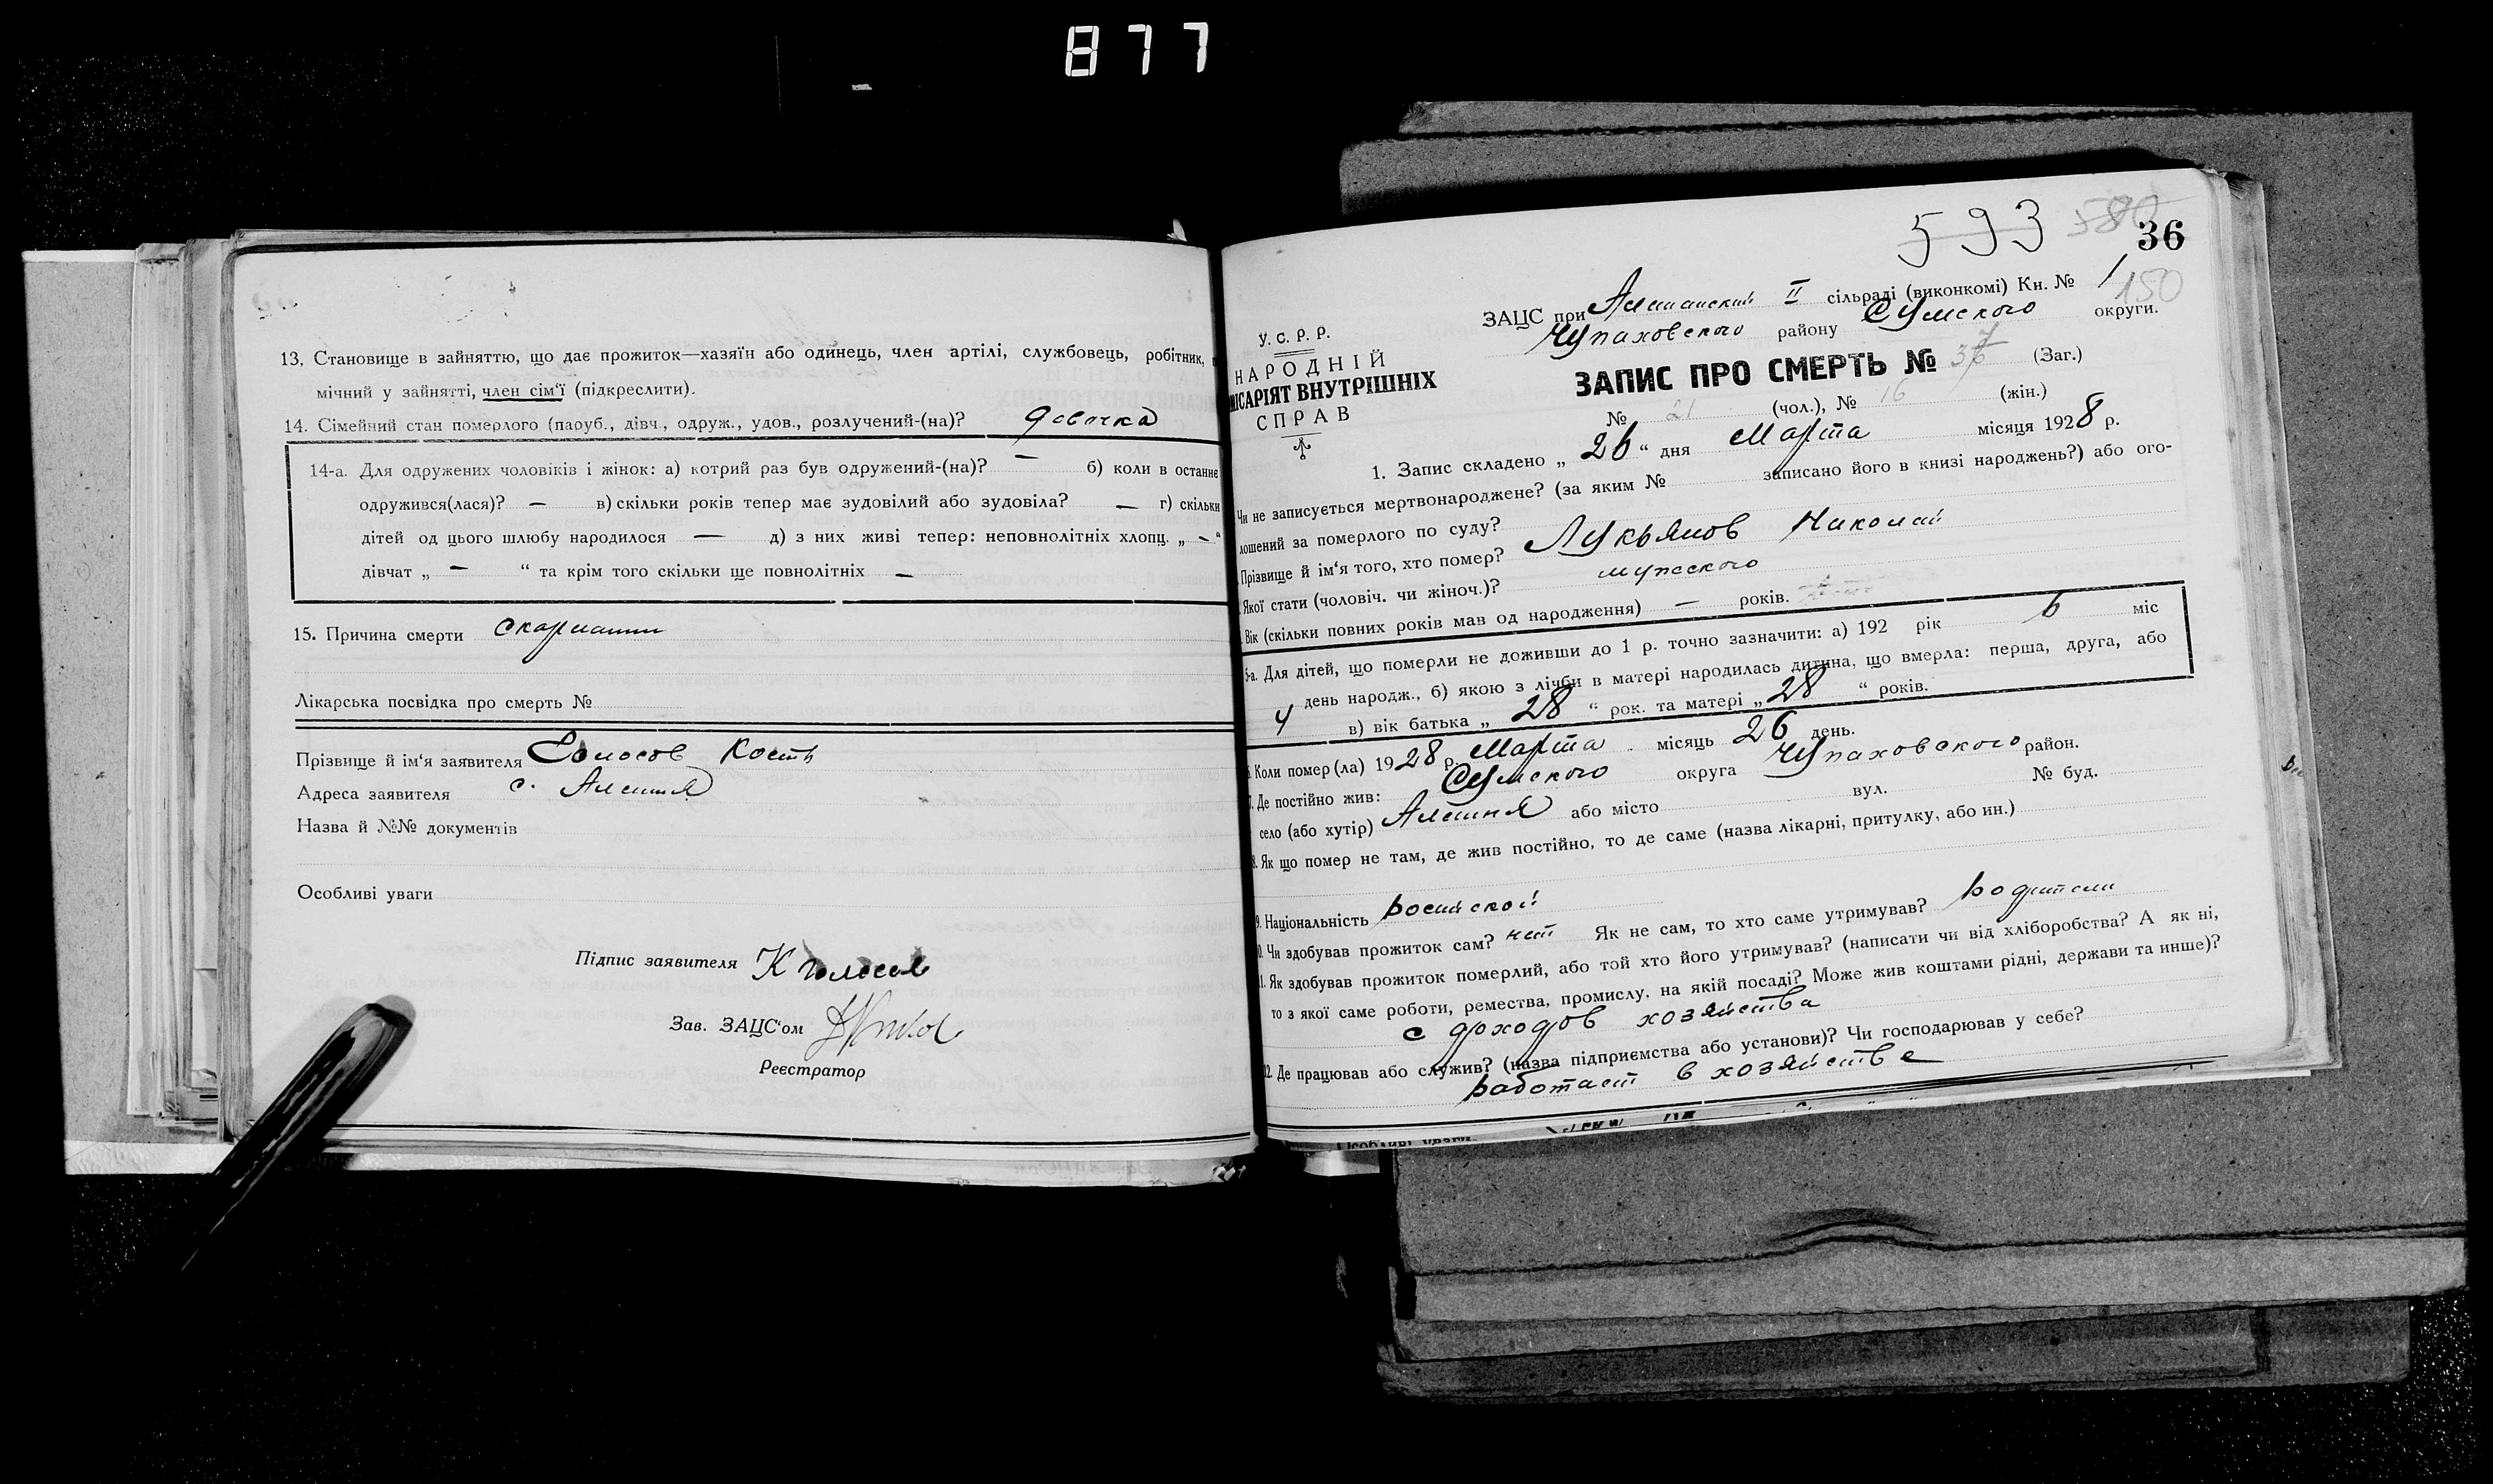 877
13. Становище в зайняттю, що дає прожиток—хазяїн або одинець, член артілі, службовець, робітник,
мічний у зайнятті, член сім'ї (підкреслити).
14. Сімейний стан померлого (паруб., дівч., одруж., удов., розлучений-(на)? девочка
14-а. Для одружених чоловіків і жінок: а) котрий раз був одружений-(на)? — б) коли в останнє
одружився(лася)? — в) скільки років тепер має зудовілий або зудовіла? — г) скільки
дітей од цього шлюбу народилося — д) з них живі тепер: неповнолітніх хлопц. „ — “
дівчат „ — “ та крім того скільки ще повнолітніх —
15. Причина смерти
Лікарська посвідка про смерть №
Прізвище й ім'я заявителя Голосов Кость
Адреса заявителя с. Алешня
Назва й №№ документів
Особливі уваги
Підпис заявителя К Голосов
Зав. ЗАЦС'ом
Реєстратор
593 580 36
150
ЗАЦС при Алешанский II сільраді (виконкомі) Кн. № 1
Чупаховского району Сумского округи.
У.С.Р.Р.
НАРОДНІЙ
ІСАРІЯТ ВНУТРІШНІХ
СПРАВ
ЗАПИС ПРО СМЕРТЬ № 37 (Заг.)
№ 21 (чол.), № 16 (жін.)
1. Запис складено „ 26 “ дня Марта місяця 1928 р.
Чи не записується мертвонароджене? (за яким № записано його в книзі народжень?) або ого-
лошений за померлого по суду?
Прізвище й ім'я того, хто помер? Лукьянов Николай
Якої стати (чоловіч. чи жіноч.)? мужского
Вік (скільки повних років мав од народження) — років.
5-а. Для дітей, що померли не доживши до 1 р. точно зазначити: а) 192 рік 6 міс
день народж., б) якою з лічби в матері народилась дитина, що вмерла: перша, друга, або
4 в) вік батька „ 28 “ рок. та матері „ 28 “ років.
Коли помер(ла) 1928 р. Марта місяць 26 день.
7. Де постійно жив: Сумского округа Чупаховского район.
село (або хутір) Алешня або місто вул. № буд.
8. Як що помер не там, де жив постійно, то де саме (назва лікарні, притулку, або ин.)
9. Національність
Чи здобував прожиток сам? нет Як не сам, то хто саме утримував? родители
Як здобував прожиток померлий, або той хто його утримував? (написати чи від хліборобства? А як ні,
то з якої саме роботи, ремества, промислу, на якій посаді? Може жив коштами рідні, держави та инше)?
с доходов хозяйства
12. Де працював або служив? (назва підприємства або установи)? Чи господарював у себе?
работает в хозяйстве